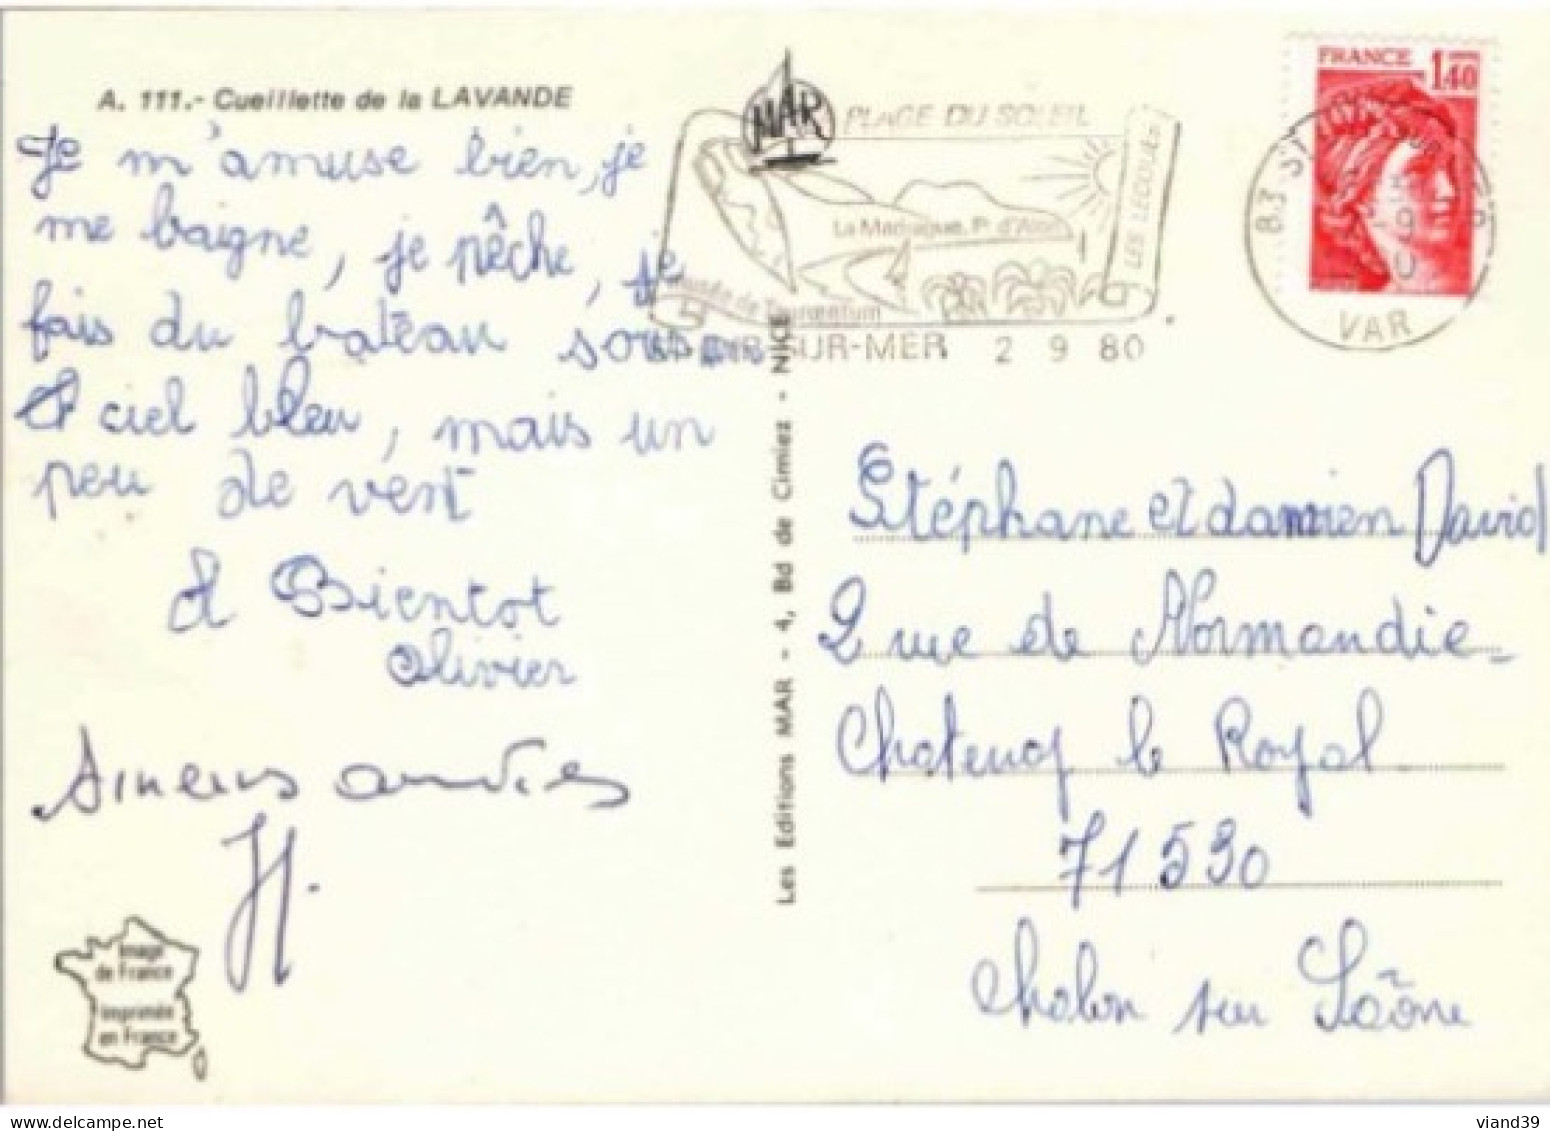 A. 111.- Cueillette de la LAVANDE
Je m'amuse bien, je
me baigne, je pêche, je
fais du bateau sous un
ciel bleu, mais un
peu de vent
A Bientot
Olivier
Image
de France
Imprimée
en France
Les Editions MAR - 4, Bd de Cimiez - NICE
MAR
PLAGE DU SOLEIL
LES LECQUES
La Madrague, Pt d'Alon
Musée de Tauroentum
SUR-MER 2 9 80
FRANCE 1,40
83 ST
VAR
Stéphane et damien David
2 rue de Normandie_
Chatenoy le Royal
71530
Chalon sur Saône
viand39